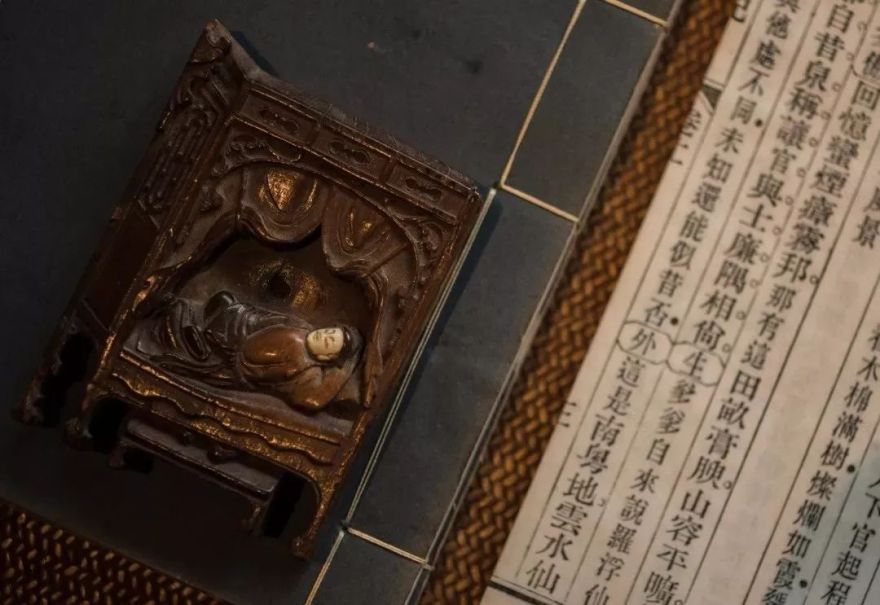 下官起程
木棉滿樹燦爛如霞
風景
回憶蠻煙瘴霧邦那有這田畝膏腴山容平曠
自昔泉稱讓官與士廉隅相尚生爹爹自來說羅浮仙
處不同未知還能似昔否外這是南粵地雲水仙
卷二
三